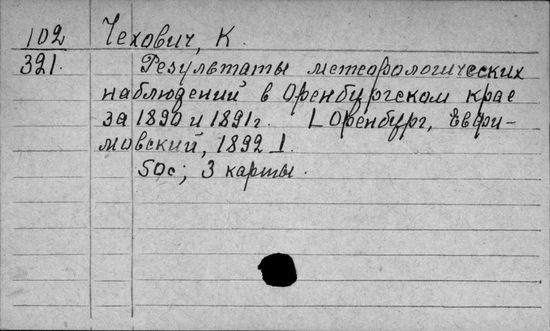 102 Чехович, К.
321. Результаты метеорологических
наблюдений в Оренбургском крае
за 1890 и 1891 г. [Оренбург, Евфи-
мовский, 1892].
50с; 3 карты.